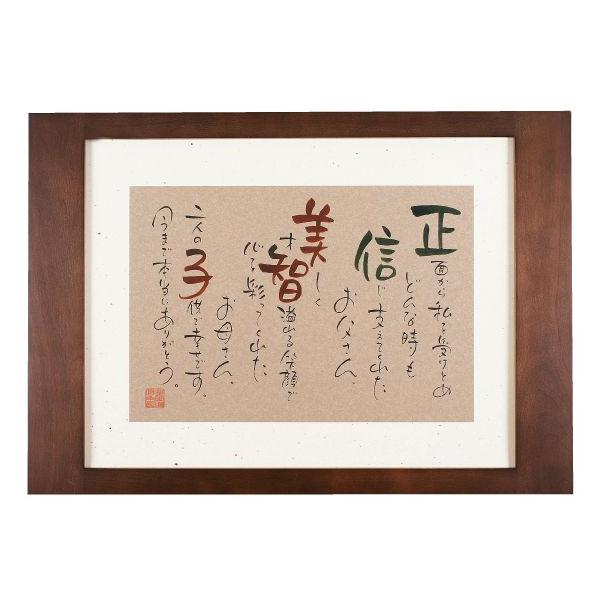 正面から私を受けとめ
どんな時も
信じ支えてくれた
お父さん、
美しく
才智溢れる笑顔で
心を彩ってくれた
お母さん、
二人の子供で幸せです。
今まで本当にありがとう。